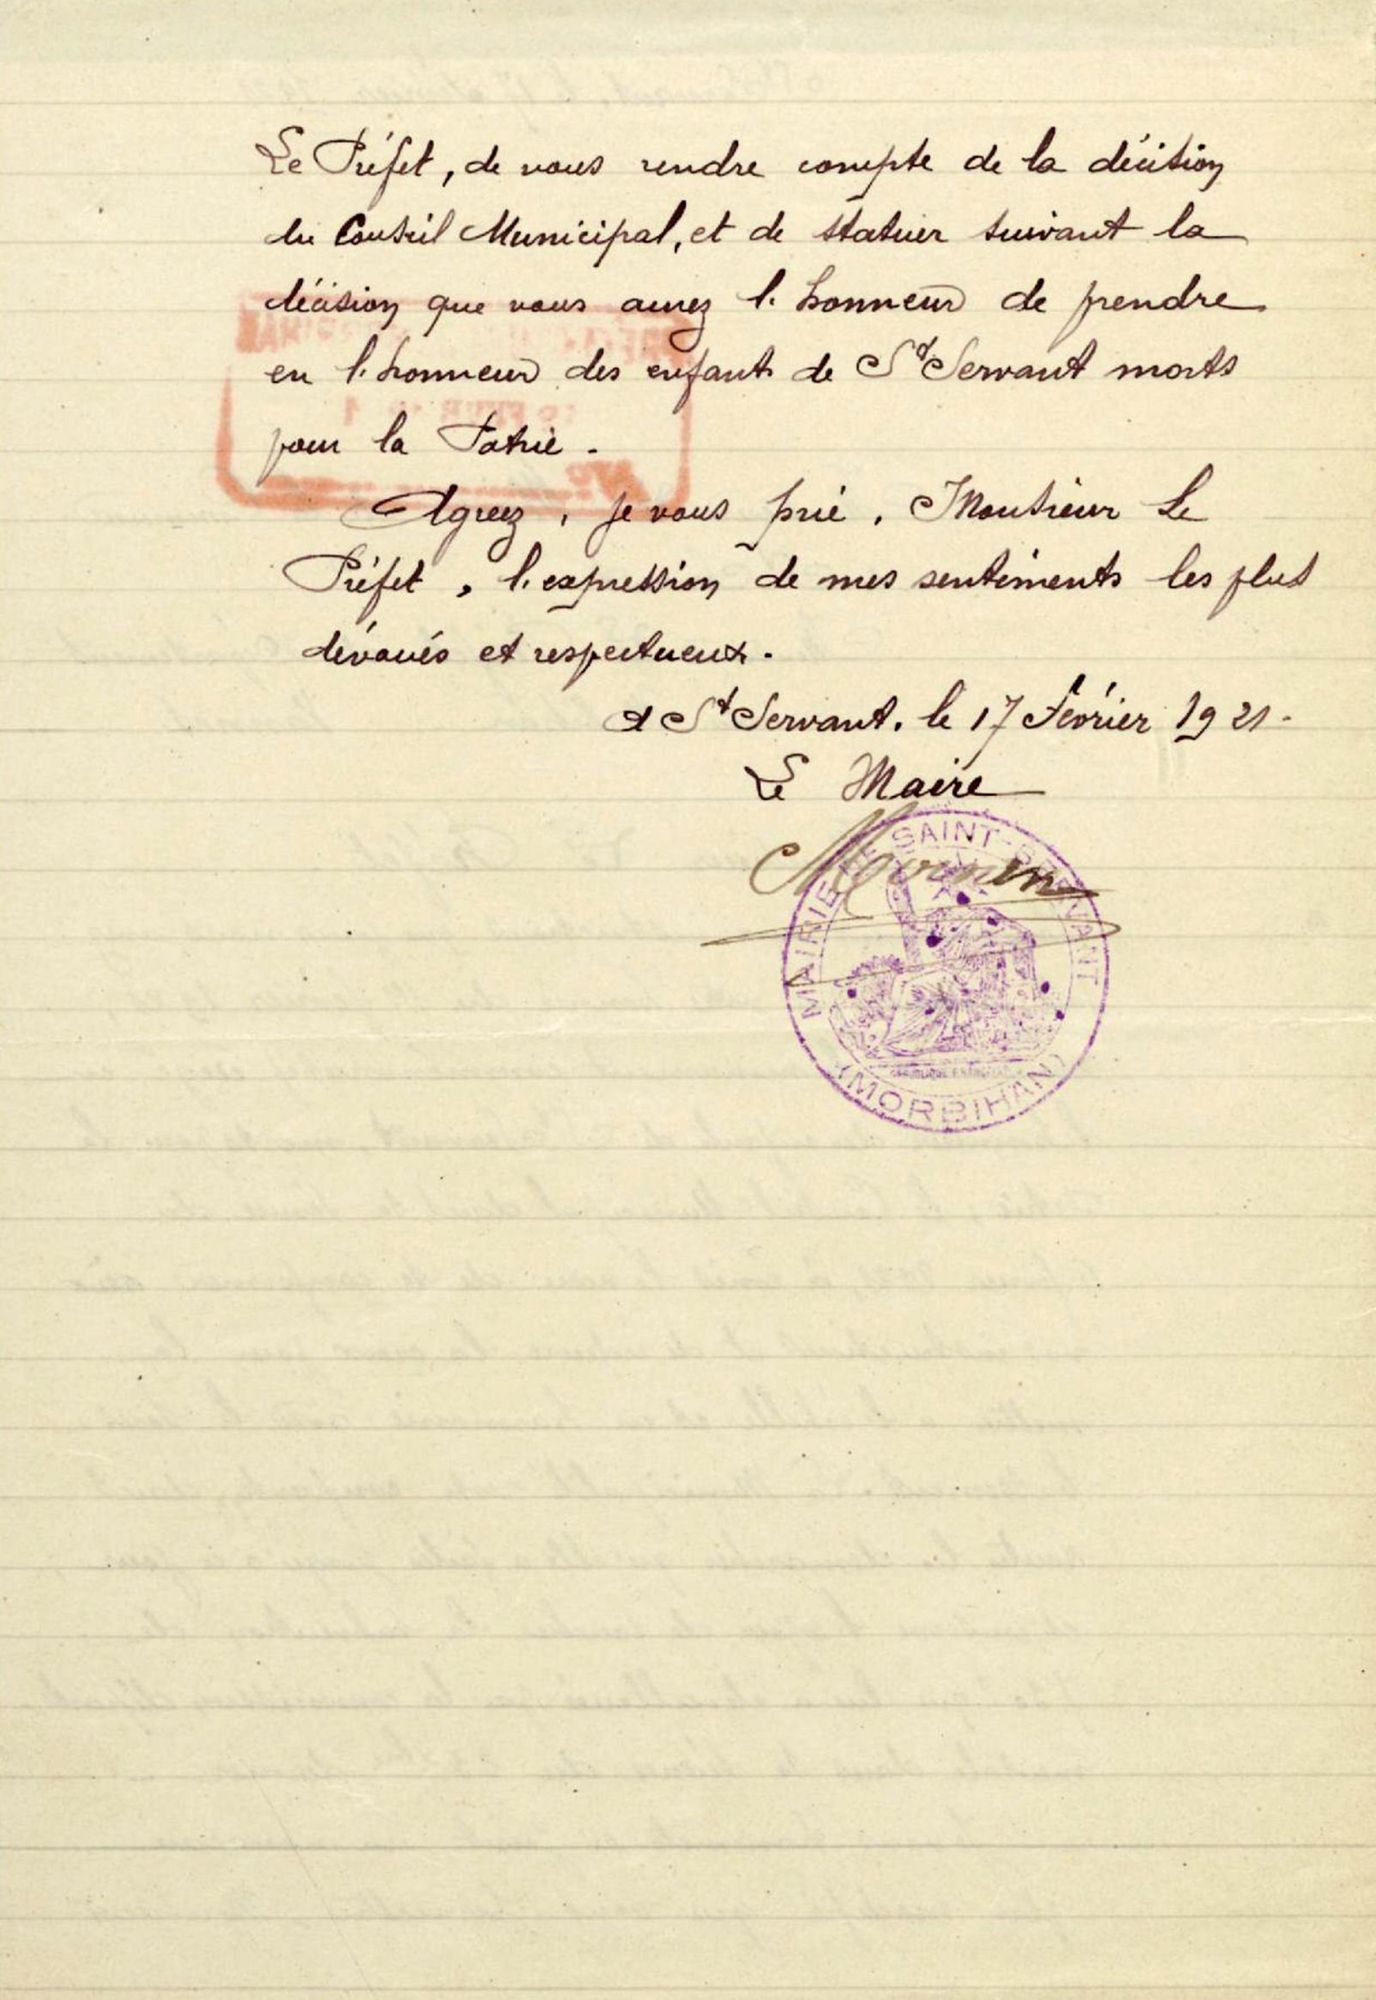 Le Préfet, de vous rendre compte de la décision
du Conseil Municipal, et de statuer suivant la
décision que vous aurez l'honneur de prendre
en l'honneur des enfants de St Servant morts
pour la Patrie -
Agreez, je vous prie, Monsieur Le
Préfet, l'expression de mes sentiments les plus
dévoués et respectueux.
A St Servant, le 17 Février 1921-
Le Maire
MAIRIE DE SAINT-SERVANT
(MORBIHAN)